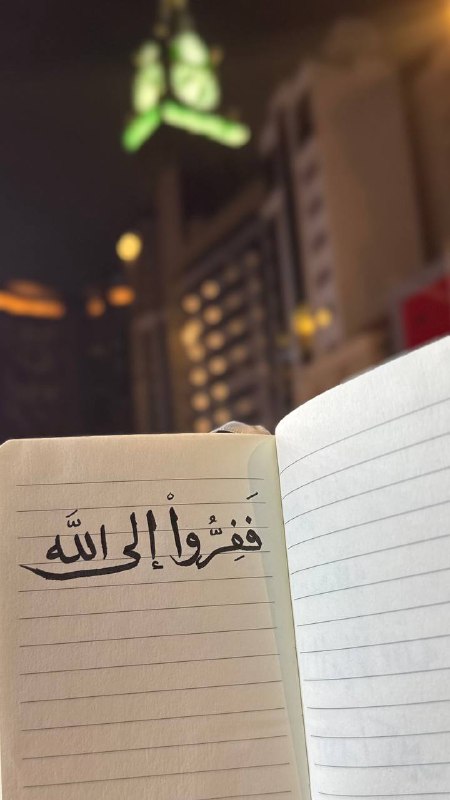 فَفِرُّواْ إلى اللَّه